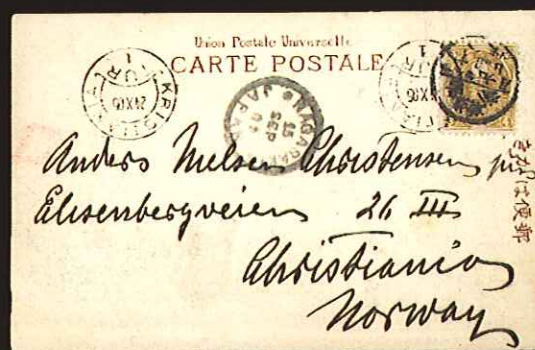 Union Postale Universelle
CARTE POSTALE
KRISTIANIA
24 X 05
NAGASAKI
JAPAN
SEP
きがは便郵
Anders Nielsen Christensen jr
Elisenbergveien 26 III
Christiania
Norway